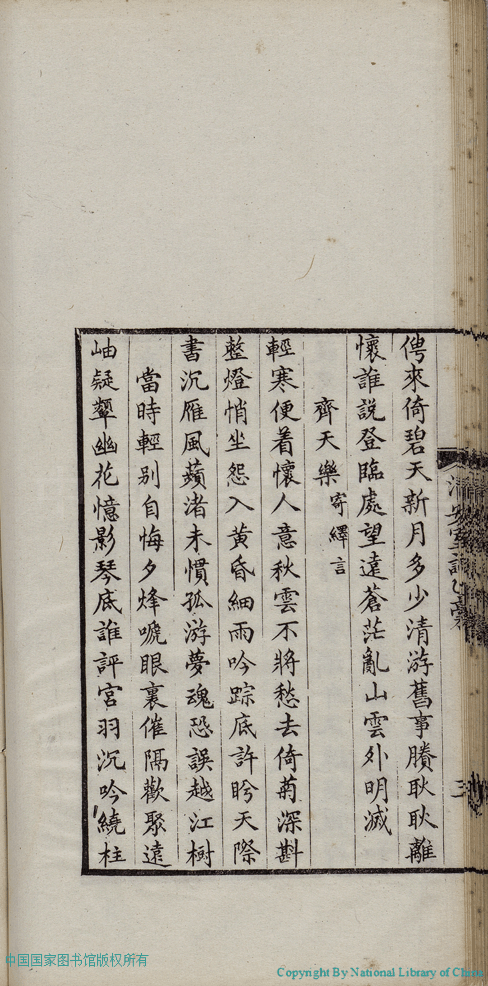 俜來倚碧天新月多少清游舊事賸耿耿離
懷誰說登臨處望遠蒼茫亂山雲外明滅
齊天樂 寄繹言
輕寒便着懷人意秋雲不將愁去倚菊深斟
整燈悄坐怨入黃昏細雨吟踪底許盻天際
書沉雁風蘋渚未慣孤游夢魂恐誤越江樹
當時輕别自悔夕烽嗁眼裏催隔歡聚遠
岫疑顰幽花憶影琴底誰評宮羽沉吟繞柱
三
中国国家图书馆版权所有
Copyright By National Library of China